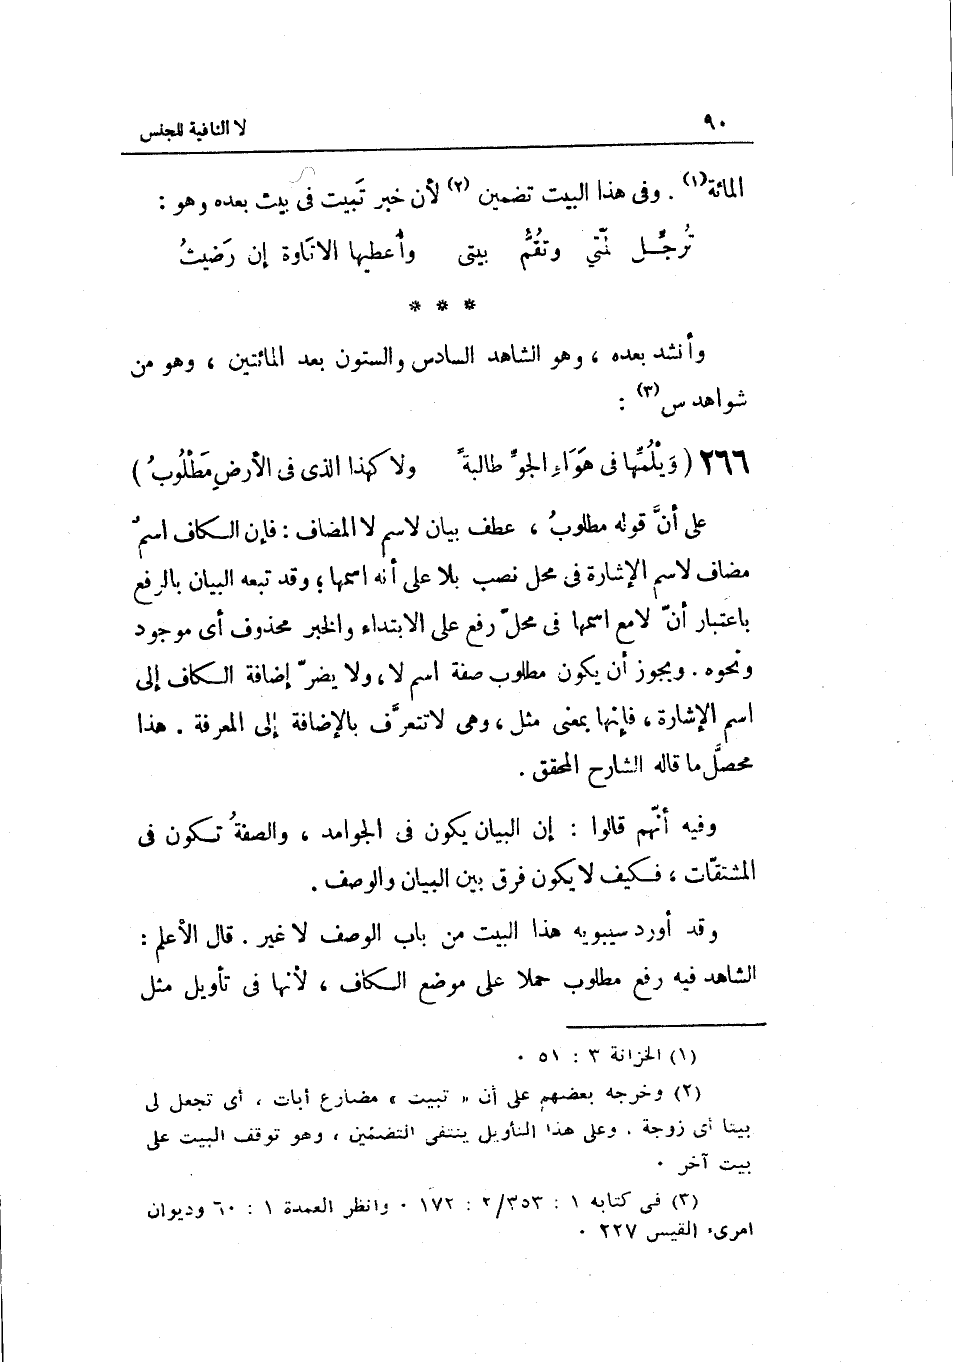 ٩٠ لا النافية للجنس
المائة(١) . وفى هذا البيت تضمين (٢) لأن خبر تَبيت فى بيت بعده وهو :
تُرجِّل لمَّتي وتقُمُّ بيتى وأُعطيها الاتاوة إن رَضيتُ
* * *
وأنشد بعده ، وهو الشاهد السادس والستون بعد المائتين ، وهو من
شواهد س(٣) :
٢٦٦ ( وَيْلُمِّها فى هَوَاءِ الجوِّ طالبةً ولا كهذا الذى فى الأرضِ مَطْلُوبُ )
على أنَّ قوله مطلوبُ ، عطف بيان لاسم لا المضاف : فإن الكاف اسمٌ
مضاف لاسم الإشارة فى محل نصب بلا على أنه اسمها ؛ وقد تبعه البيان بالرفع
باعتبار أنّ لامع اسمها فى محلّ رفع على الابتداء والخبر محذوف أى موجود
ونحوه . ويجوز أن يكون مطلوب صفة اسم لا ، ولا يضرّ إضافة الكاف إلى
اسم الإشارة ، فإنها بمعنى مثل ، وهى لاتتعرَّف بالإضافة إلى المعرفة . هذا
محصَّل ما قاله الشارح المحقق .
وفيه أنّهم قالوا : إن البيان يكون فى الجوامد ، والصفةُ تكون فى
المشتقّات ، فكيف لا يكون فرق بين البيان والوصف .
وقد أورد سيبويه هذا البيت من باب الوصف لا غير . قال الأعلم :
الشاهد فيه رفع مطلوب حملا على موضع الكاف ، لأنها فى تأويل مثل
(١) الخزانة ٣ : ٥١ ٠
(٢) وخرجه بعضهم على أن « تبيت » مضارع أبات ، أى تجعل لى
بيتا أى زوجة . وعلى هذا التأويل ينتفى التضمين ، وهو توقف البيت على
بيت آخر ٠
(٣) فى كتابه ١ : ٣٥٣/ ٢ : ١٧٢ ٠ وانظر العمدة ١ : ٦٠ وديوان
امرىء القيس ٢٢٧ ٠